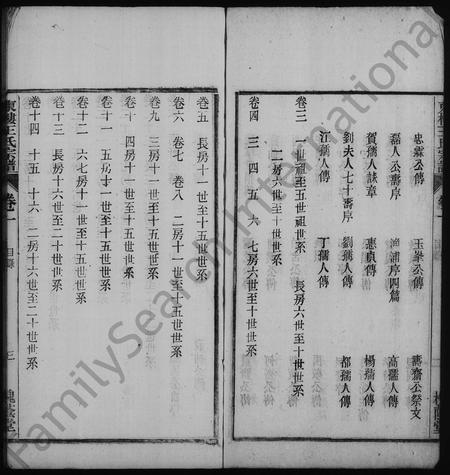 忠霖公傳 玉峯公傳 壽齋公祭文
磊人公壽序 漁浦序四篇 高孺人傳
賀孺人誄章 惠貞傳 楊孺人傳
劉夫人七十壽序 劉孺人傳 都孺人傳
江孺人傳 丁孺人傳
卷三 一世祖至五世祖世系 長房六世至十世世系
卷四 三 四 五 六 七房六世至十世世系
卷五 長房十一世至十五世世系
卷六 卷七 卷八 二房十一世至十五世世系
卷九 三房十一世至十五世世系
卷十 四房十一世至十五世世系
卷十一 五房十一世至十五世世系
卷十二 六七房十一世至十五世世系
卷十三 長房十六世至二十世世系
卷十四 十五 十六 二房十六世至二十世世系
東樓王氏宗譜 卷一 目錄 三 槐蔭堂
FamilySearch International